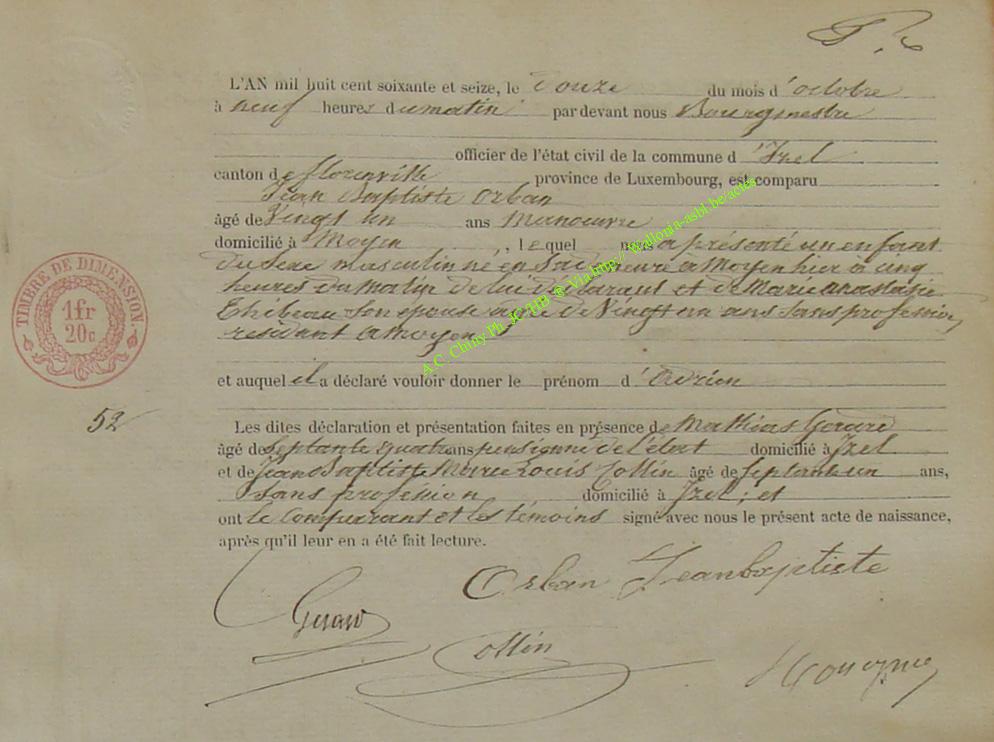 L'AN mil huit cent soixante et seize, le Douze du mois d'octobre
à neuf heures du matin par devant nous Bourgmestre
officier de l'état civil de la commune d'Izel
canton de florenville province de Luxembourg, est comparu
Jean Baptiste Orban
âgé de Vingt un ans Manoeuvre
domicilié à Moyen, lequel nous a présenté un enfant
du sexe masculin né en sa demeure à Moyen hier à cinq
heures du matin de lui déclarant et de Marie Anastasie
Thibeau son épouse agée de Vingt un ans sans profession,
résidant a Moyen
et auquel il a déclaré vouloir donner le prénom d'Adrien
52
Les dites déclaration et présentation faites en présence de Mathias Gerard
âgé de Septante quatre ans pensionné de l'état domicilié à Izel
et de Jean Baptiste Marie Louis Collin âgé de Septante un ans,
sans profession domicilié à Izel; et
ont le Comparant et les témoins signé avec nous le présent acte de naissance,
après qu'il leur en a été fait lecture.
Orban Jeanbaptiste
Gerard
Collin
TIMBRE DE DIMENSION.
1fr
20c